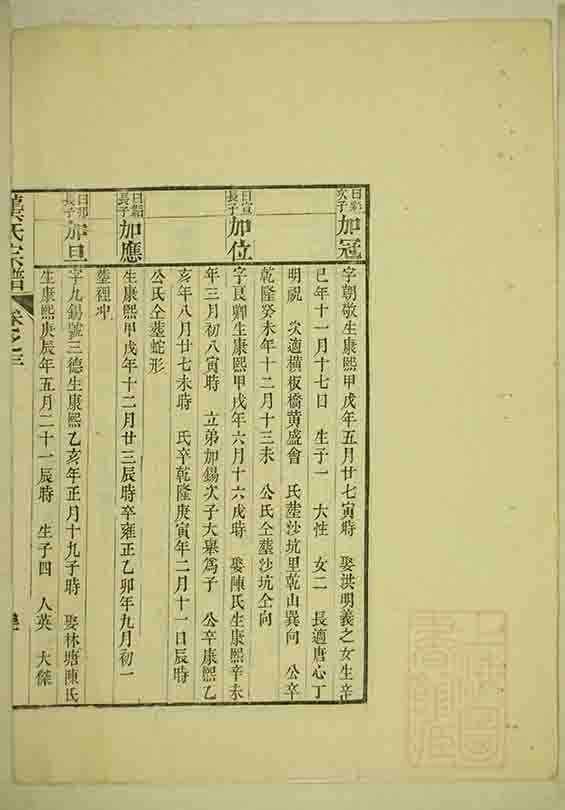 曰彩次子
加冠
字朝敬生康熙甲戌年五月廿七寅時 娶洪明義之女生辛
巳年十一月十七日 生子一 大性 女二 長適唐心丁
明祝 次適橫板橋黄盛會 氏塟沙坑里乾山巽向 公卒
乾隆癸未年十二月十三未 公氏仝塟沙坑仝向
曰宣長子
加位
字良卿生康熙甲戌年六月十六戌時 娶陳氏生康熙辛未
年三月初八寅時 立弟加錫次子大擧爲子 公卒康熙乙
亥年八月廿七未時 氏卒乾隆庚寅年二月十一日辰時
公氏仝塟蛇形
曰韜長子
加應
生康熙甲戌年十二月廿三辰時卒雍正乙卯年九月初一
塟裡冲
長子
加旦
字九錫號三德生康熙乙亥年正月十九子時 娶林塘陳氏
生康熙庚辰年五月二十一辰時 生子四 人英 大傑
氏宗譜 卷之三